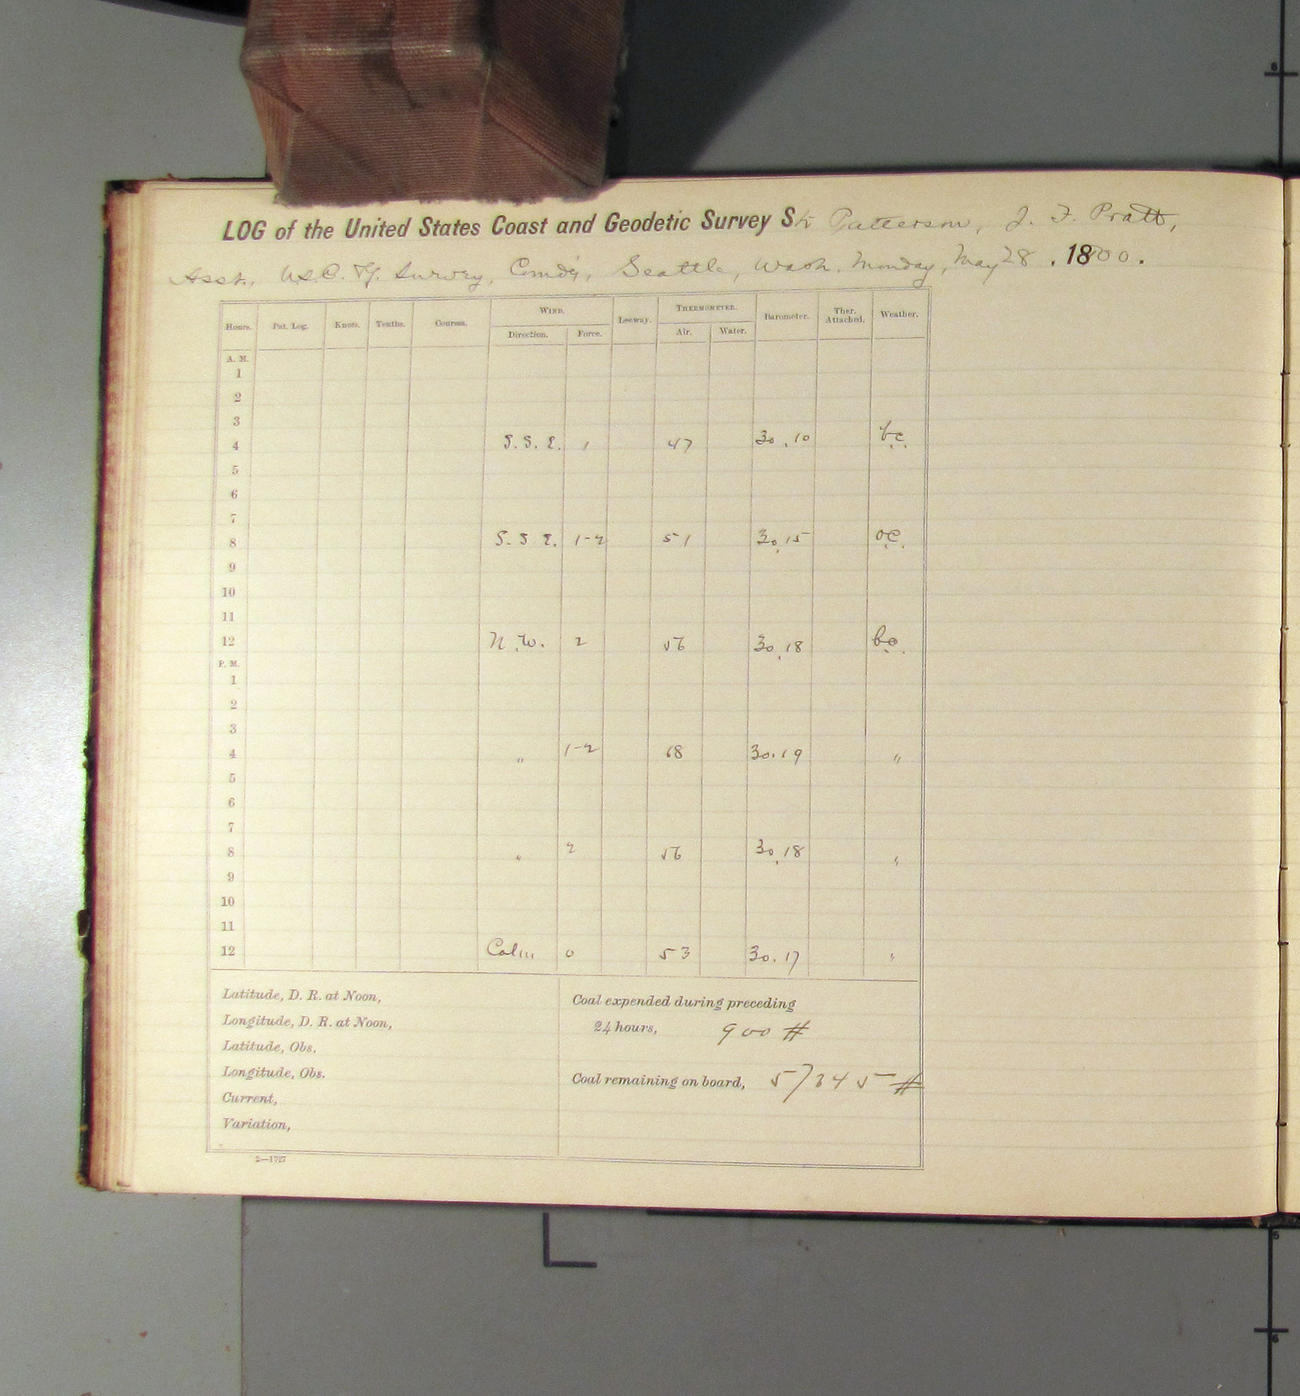 LOG of the United States Coast and Geodetic Survey Str Patterson, J. F. Pratt,
Asst. U.S.C. & G. Survey, Comd'g, Seattle, Wash. Monday, May 28, 1900.
Hours. Pat. Log. Knots. Tenths. Courses. WIND. Leeway. THERMOMETER. Barometer. Ther. Attached. Weather.
Direction. Force. Air. Water.
A. M.
1
2
3
4 S. S. E. 1 47 30.10 bc.
5
6
7
8 S. S E. 1-2 51 30.15 oc.
9
10
11
12 N.W. 2 56 30.18 bc.
P. M.
1
2
3
4 " 1-2 68 30.19 "
5
6
7
8 " 2 56 30.18 "
9
10
11
12 Calm 0 53 30.17 "
Latitude, D. R. at Noon,
Longitude, D. R. at Noon,
Latitude, Obs.
Longitude, Obs.
Current,
Variation,
Coal expended during preceding
24 hours, 900 #
Coal remaining on board, #
2—1727